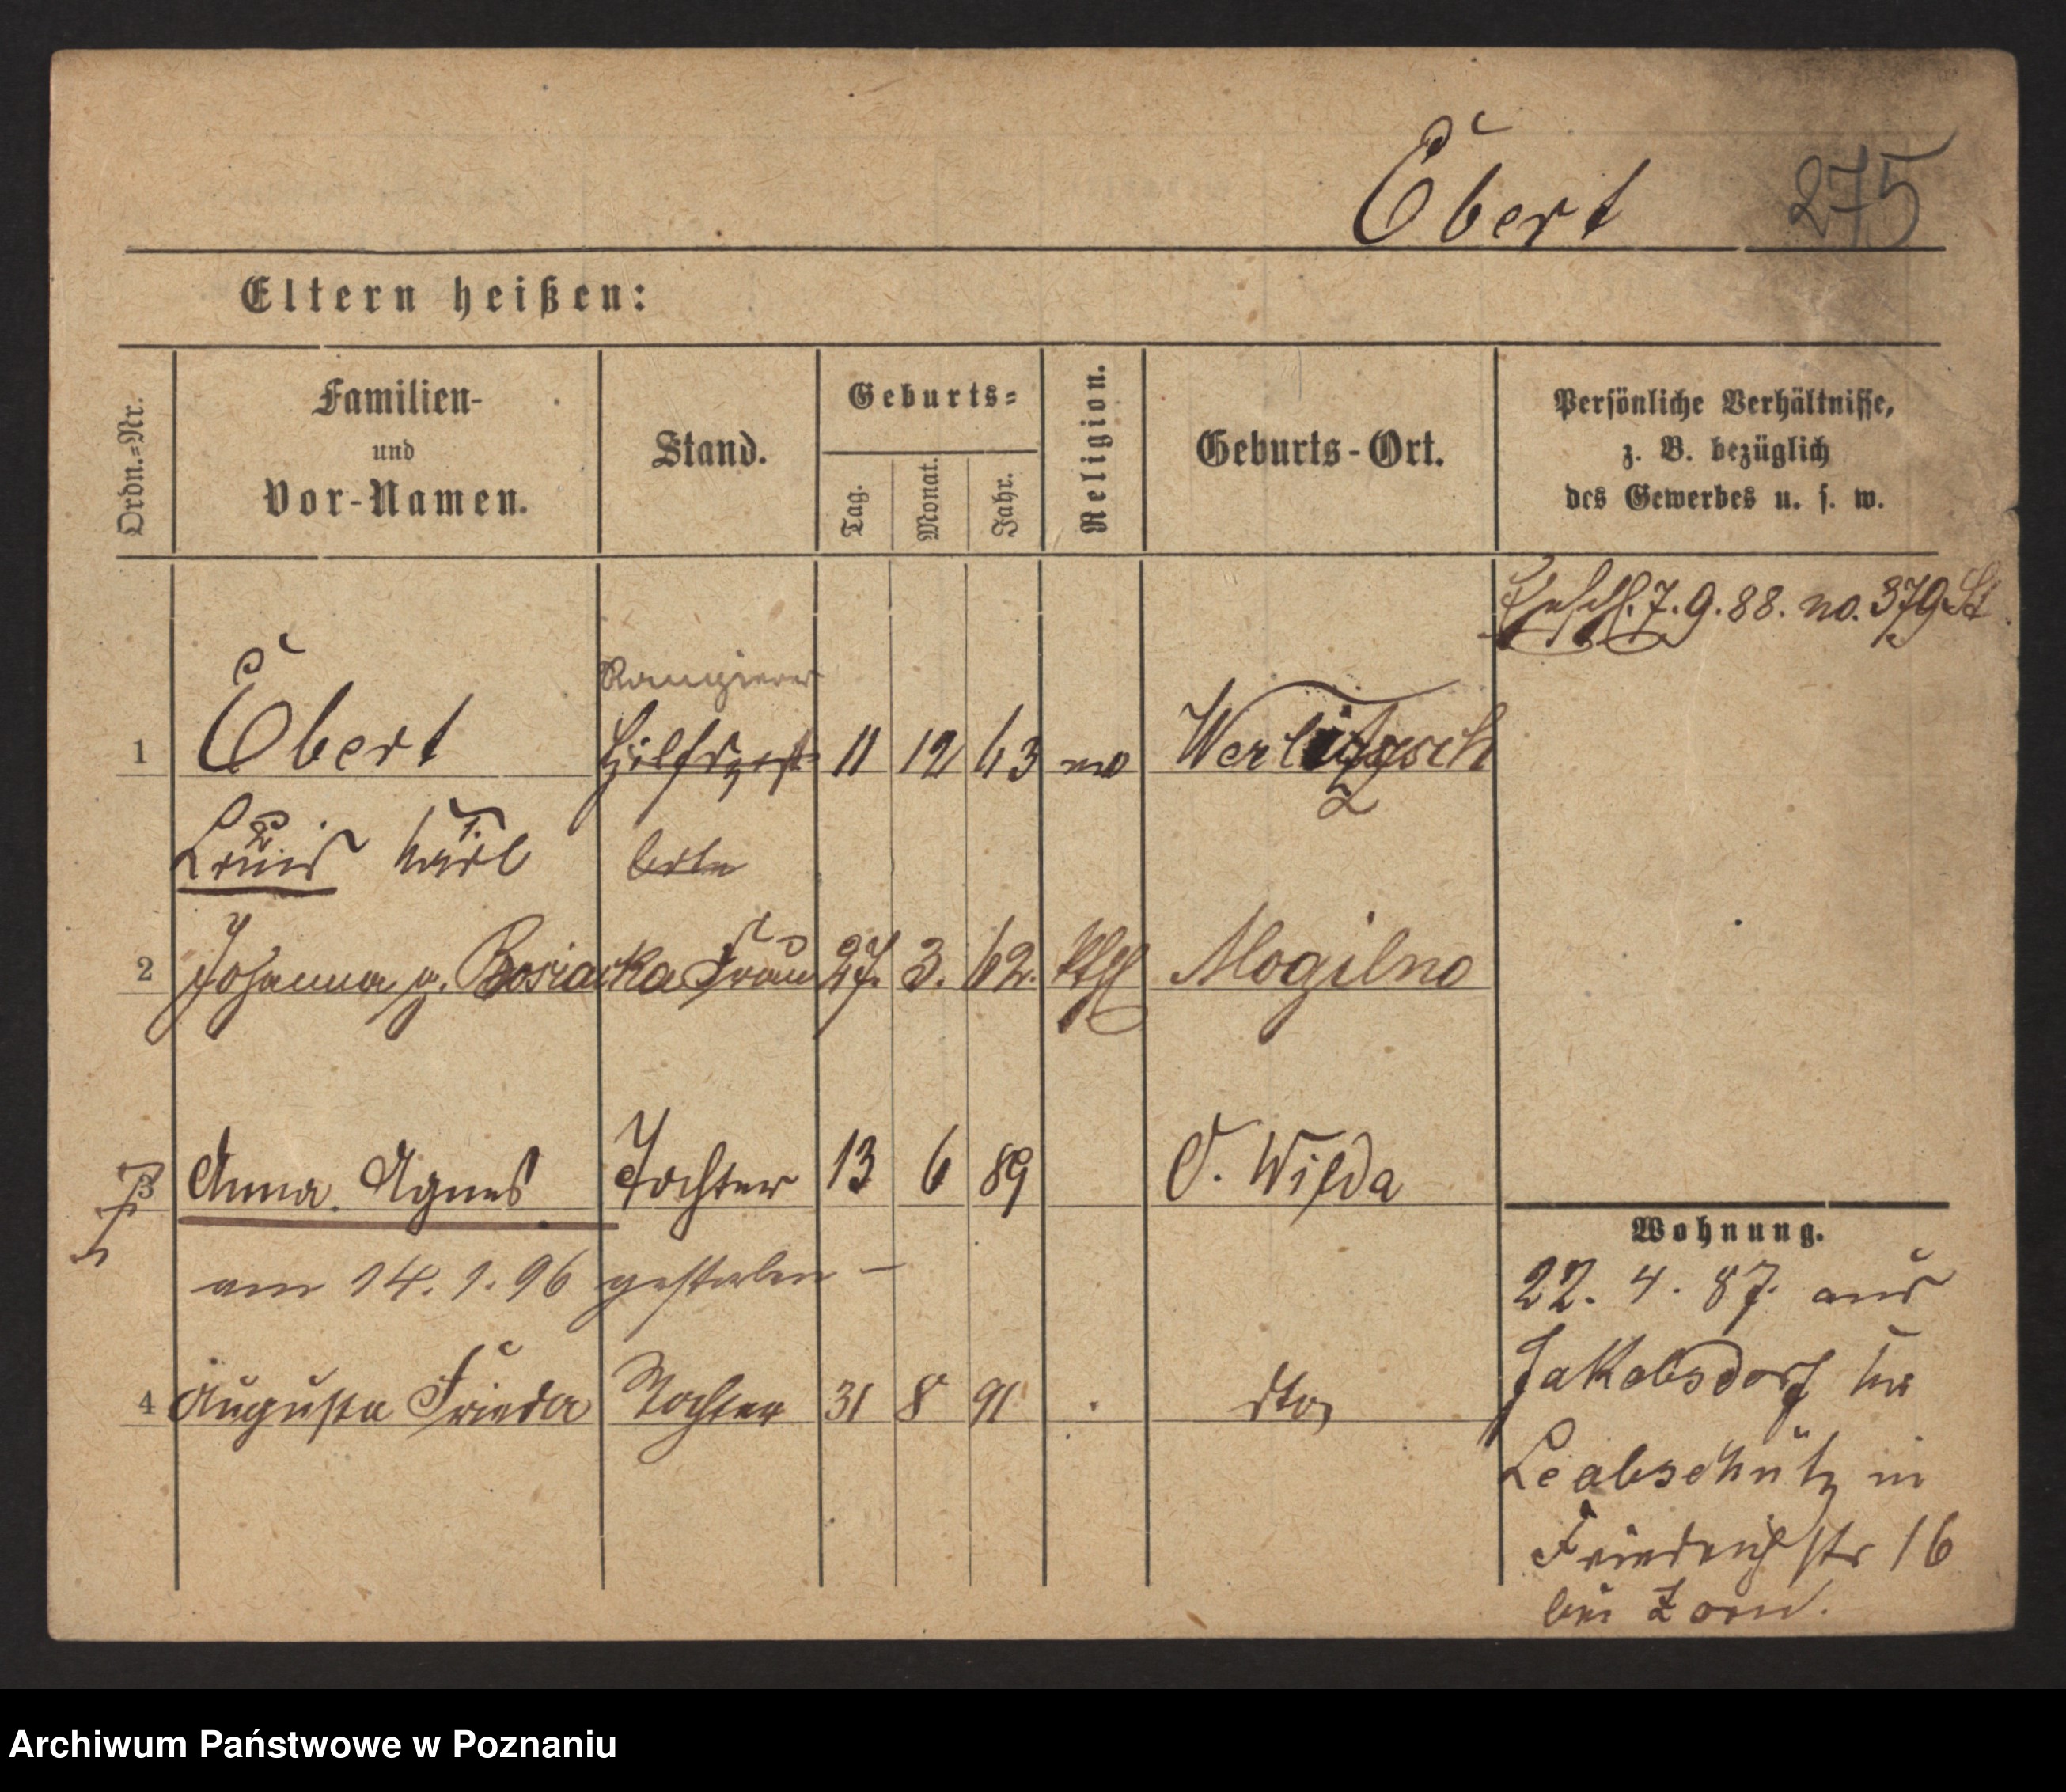 Ebert 275
Eltern heißen:
Ordn.=Nr.
Familien-
und
Vor-Namen.
Stand.
Geburts=
Tag.
Monat.
Jahr.
Religion.
Geburts-Ort.
Persönliche Verhältnisse,
z. B. bezüglich
des Gewerbes u. s. w.
7. 9. 88. no. 379 St
Rangierer
1 Ebert 11 12 63 Werlitzsch
Louis Karl
2 Johanna g. Bosiacka Frau 27. 3. 62. Kth Mogilno
3 Anna Agnes Tochter 13 6 89 O. Wilda
am 14. 1. 96 gestorben –
4 Augusta Frieda Tochter 31 8 91 dto
Wohnung.
22. 4. 87. aus
Jakobsdorf Krs
Leobschütz in
Friedrichstr 16
bei Zorn.
Archiwum Państwowe w Poznaniu